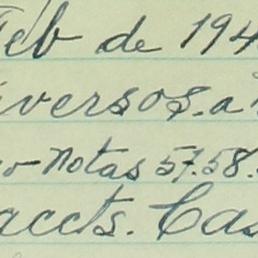 Feb de 194
iversos. a
o- Notas 57.58.
accts. Cas